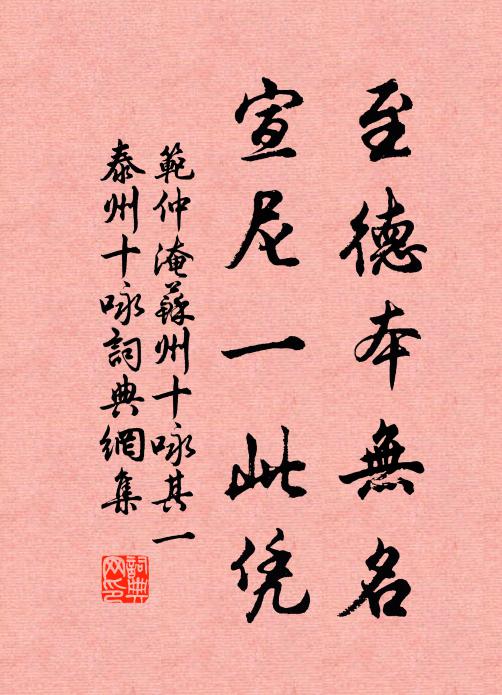 至德本無名
宣尼一此凭
範仲淹蘇州十咏其一
泰州十咏詞典網集
詞典网印